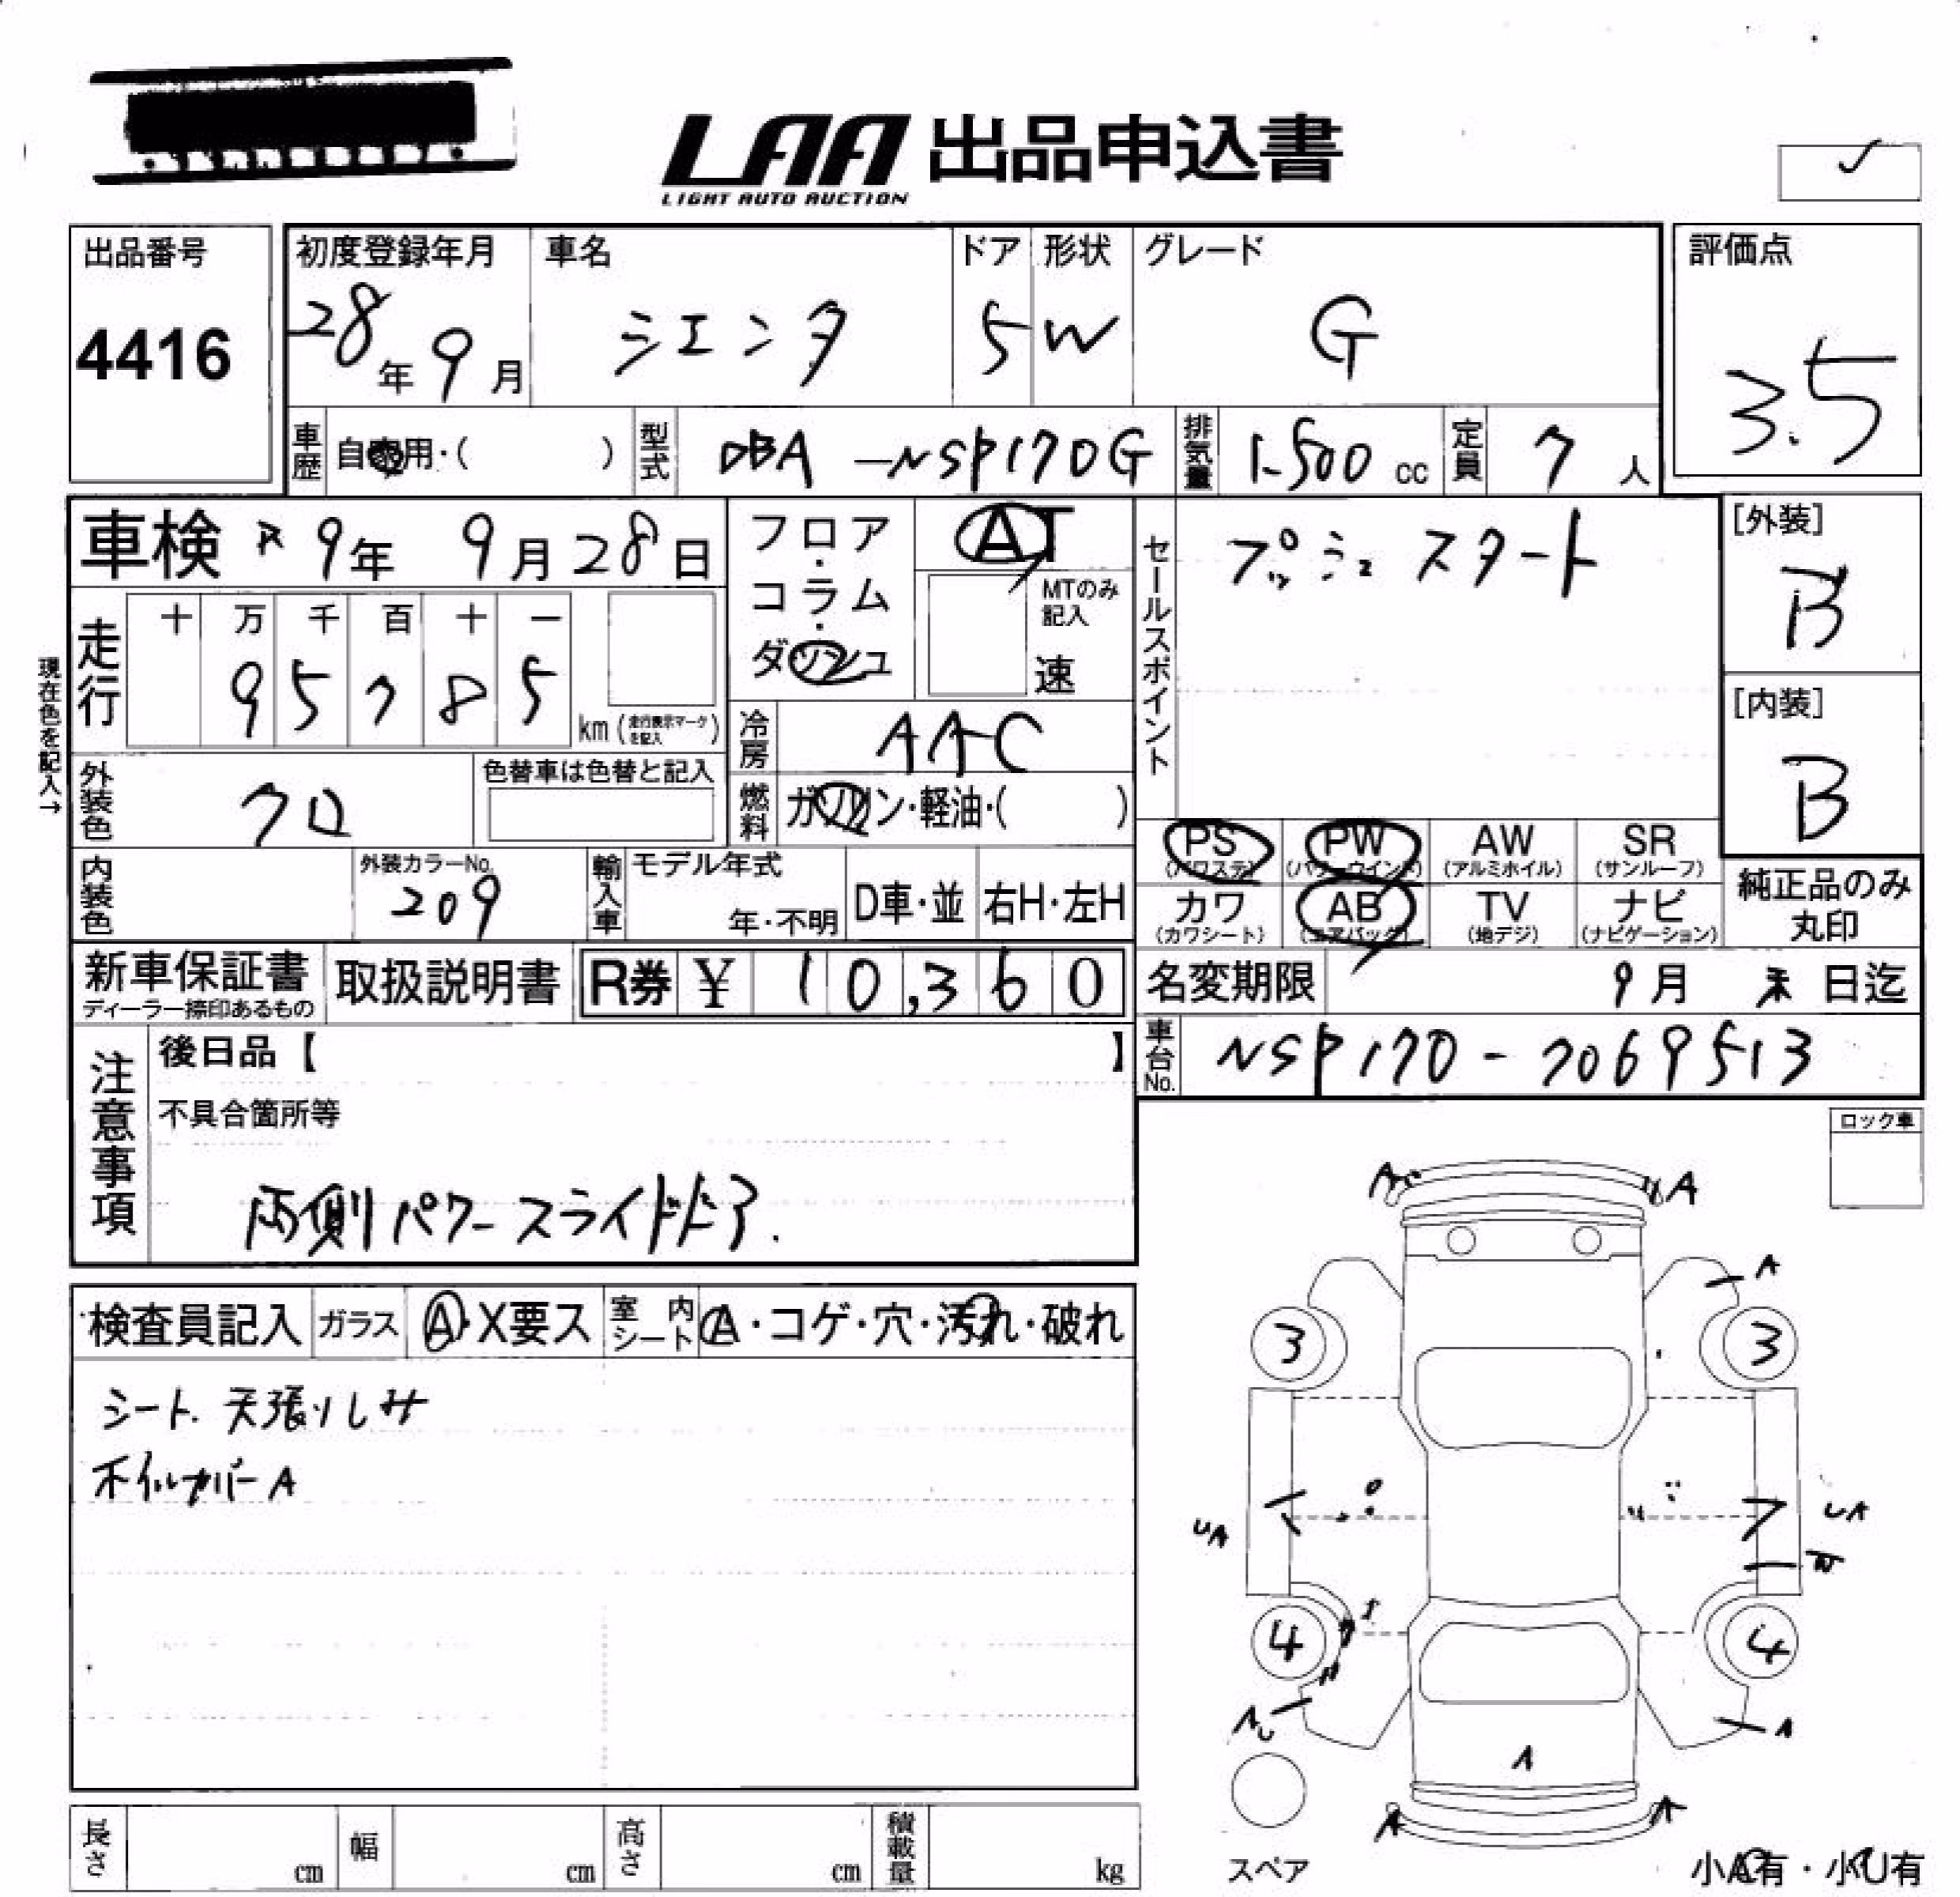 LAA 出品申込書
LIGHT AUTO AUCTION
出品番号
4416
初度登録年月
28年 9月
車名
シエンタ
ドア
5
形状
W
グレード
G
評価点
3.5
車歴
自家用・( )
型式
DBA-NSP170G
排気量
1.500 cc
定員
7人
車検 R9年 9月28日
フロア・コラム・ダッシュ
AT
MTのみ記入
速
セールスポイント
プッシュスタート
[外装]
B
[内装]
B
現在色を記入→
走行
十 万 千 百 十 一
9 5 7 8 5
km (走行表示マークを記入)
冷房
AAC
外装色
クロ
色替車は色替と記入
燃料
ガソリン・軽油・( )
PS
(パワステ)
PW
(パワーウインド)
AW
(アルミホイル)
SR
(サンルーフ)
内装色
外装カラーNo.
209
輸入車
モデル年式
年・不明
D車・並
右H・左H
カワ
(カワシート)
AB
(エアバッグ)
TV
(地デジ)
ナビ
(ナビゲーション)
純正品のみ
丸印
新車保証書
ディーラー捺印あるもの
取扱説明書
R券 ¥ 10,360
名変期限
9月 末日迄
車台No.
NSP170-7069513
注意事項
後日品【 】
不具合箇所等
両側パワースライドドア.
ロック車
検査員記入
ガラス
A・X要ス
室内シート
A・コゲ・穴・汚れ・破れ
シート. 天張りしみ
ホイルカバーA
A A
A
3 3
UA UA
4 4
A
A
A A
スペア
小A有・小U有
長さ cm
幅 cm
高さ cm
積載量 kg